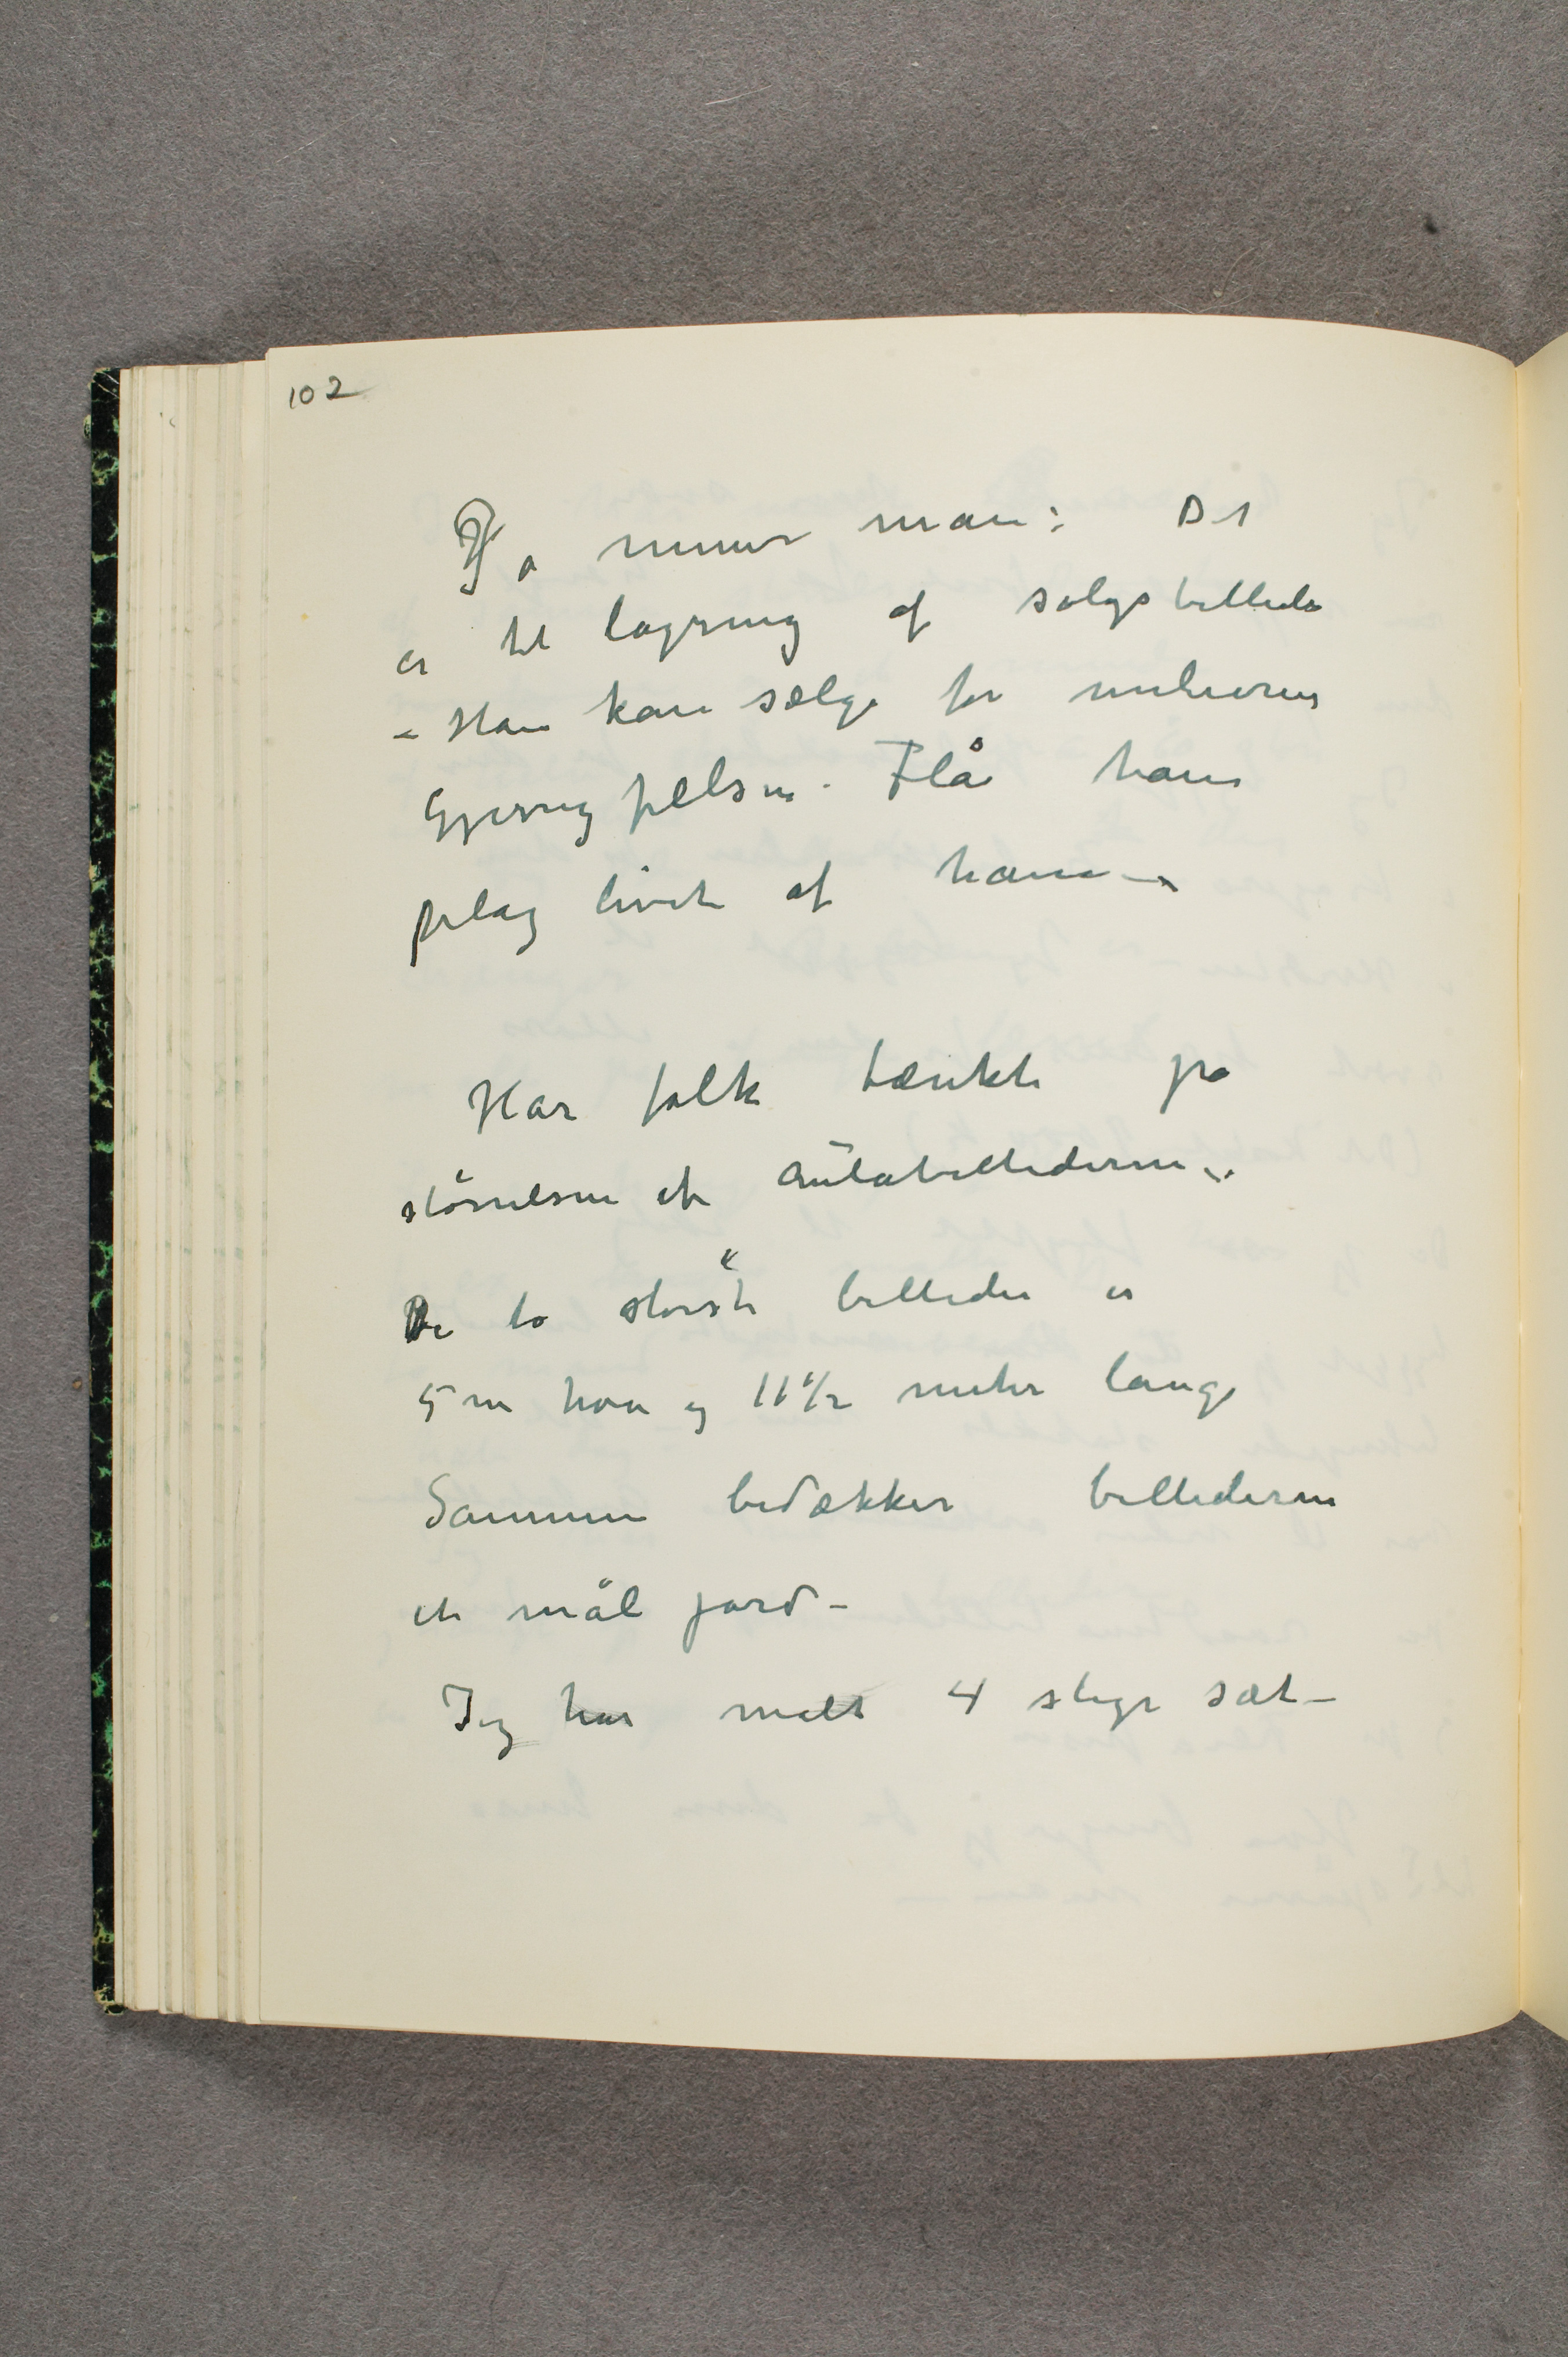 102
Ja mener man: Det
er til lagring af salgsbilleder
– Han kan sælge for milioner
Gjerrig pølsen. Flå ham
plag livet af ham –
Har folk tænkt på
størrelsen af Aulabillederne.
De to største billeder er
5 m høie og 11 1/2 meter lange
Sammen bedækker billederne
et mål jord –
Jeg har malt 4 slige sæt –